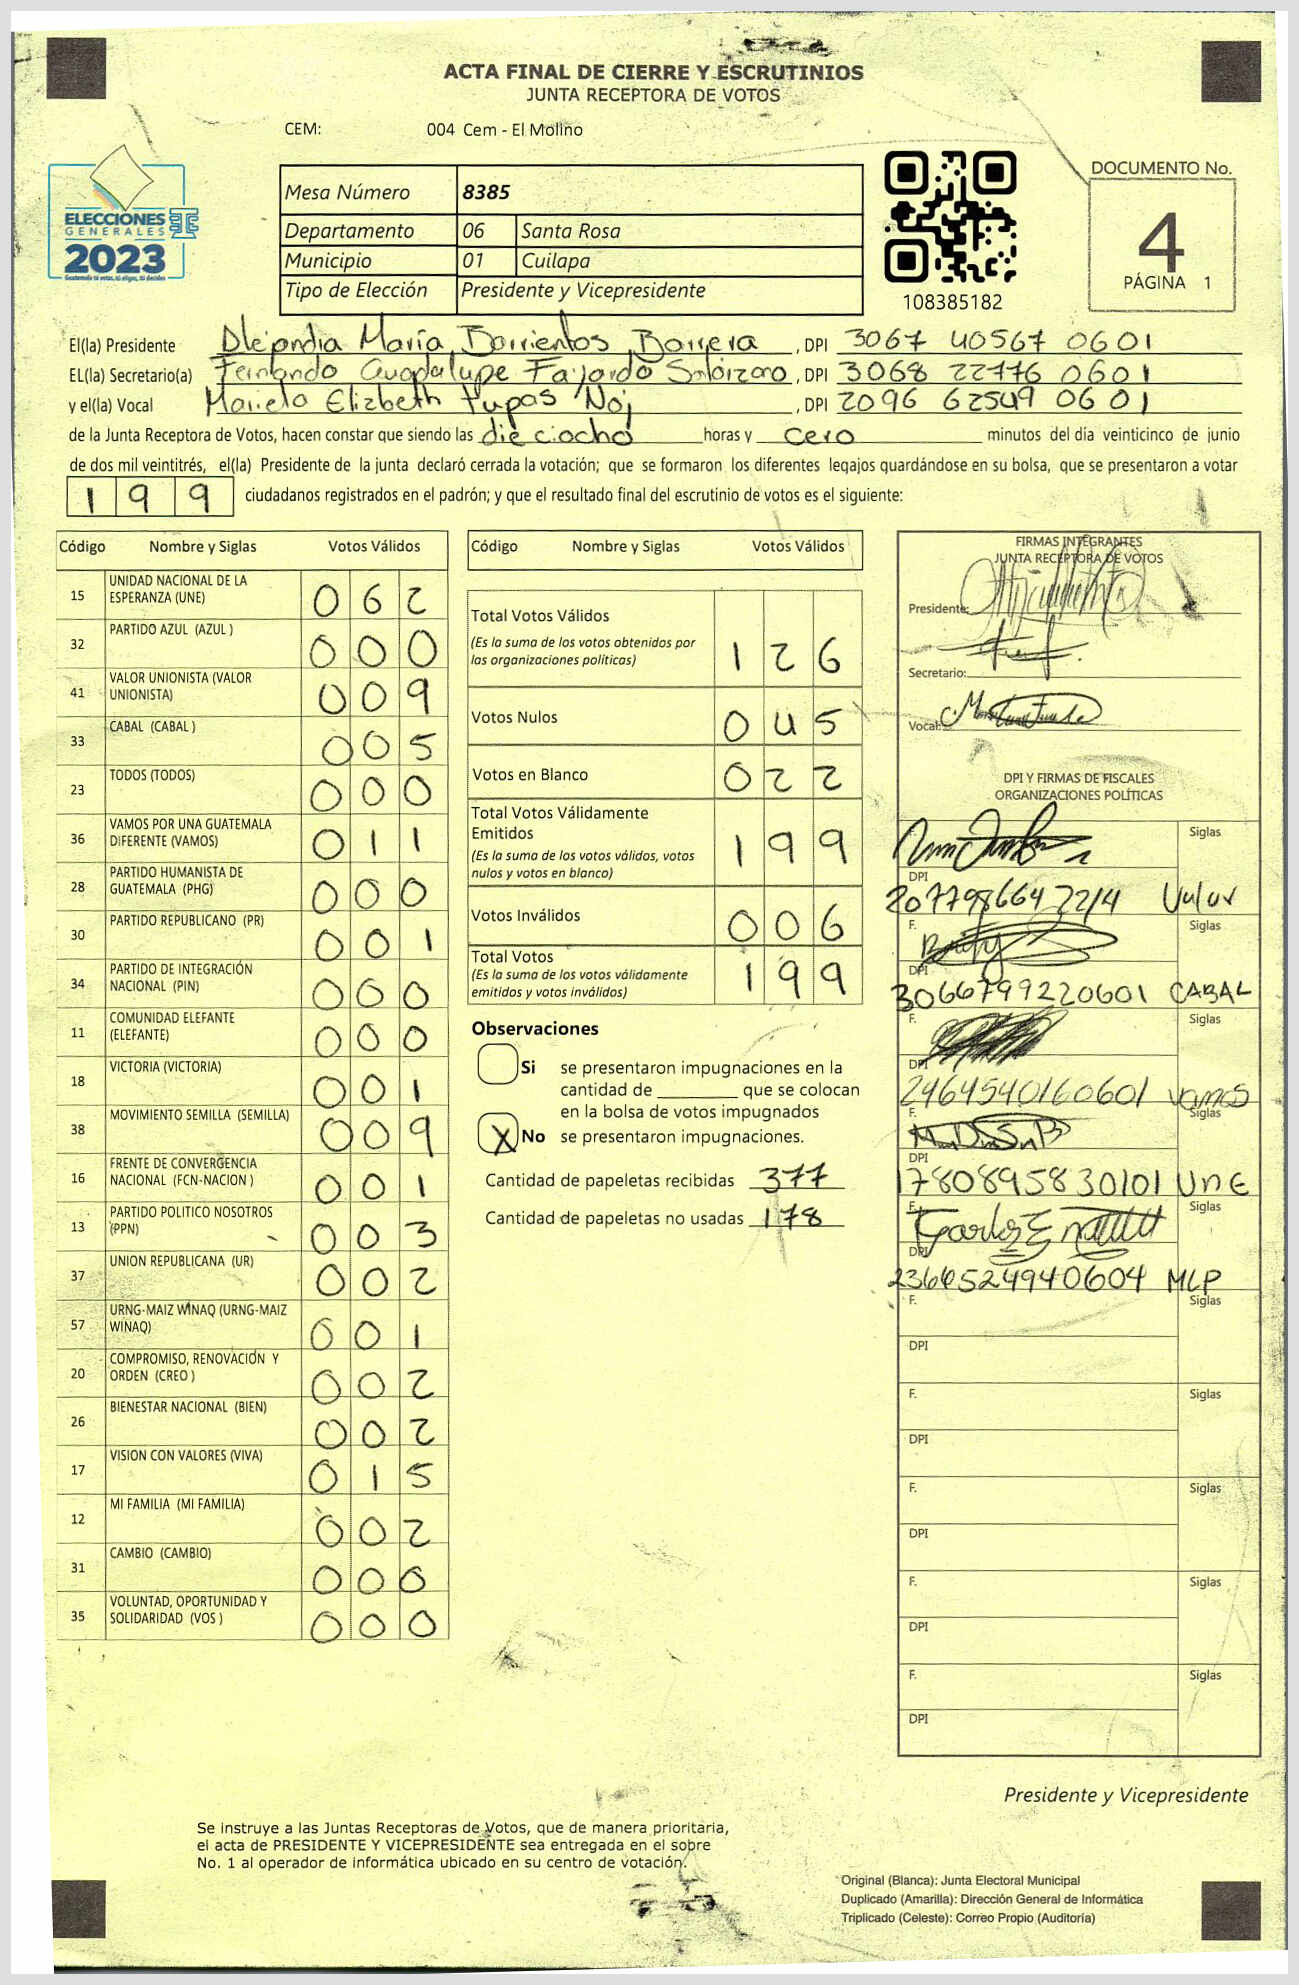 ACTA FINAL DE CIERRE Y ESCRUTINIOS
JUNTA RECEPTORA DE VOTOS
CEM: 004 Cem - El Molino
ELECCIONES
GENERALES
2023
Guatemala tú votas, tú eliges, tú decides
Mesa Número 8385
Departamento 06 Santa Rosa
Municipio 01 Cuilapa
Tipo de Elección Presidente y Vicepresidente
108385182
DOCUMENTO No.
4
PÁGINA 1
El(la) Presidente Alejandra María Barrientos Barrera, DPI 3067 40567 0601
EL(la) Secretario(a) Fernando Guadalupe Fajardo Solórzano, DPI 3068 22776 0601
y el(la) Vocal Mariela Elizbeth Yupas Noj, DPI 2096 62549 0601
de la Junta Receptora de Votos, hacen constar que siendo las dieciocho horas y cero minutos del día veinticinco de junio
de dos mil veintitrés, el(la) Presidente de la junta declaró cerrada la votación; que se formaron los diferentes legajos guardándose en su bolsa, que se presentaron a votar
199 ciudadanos registrados en el padrón; y que el resultado final del escrutinio de votos es el siguiente:
Código Nombre y Siglas Votos Válidos
15 UNIDAD NACIONAL DE LA ESPERANZA (UNE) 062
32 PARTIDO AZUL (AZUL ) 000
41 VALOR UNIONISTA (VALOR UNIONISTA) 009
33 CABAL (CABAL ) 005
23 TODOS (TODOS) 000
36 VAMOS POR UNA GUATEMALA DIFERENTE (VAMOS) 011
28 PARTIDO HUMANISTA DE GUATEMALA (PHG) 000
30 PARTIDO REPUBLICANO (PR) 001
34 PARTIDO DE INTEGRACIÓN NACIONAL (PIN) 000
11 COMUNIDAD ELEFANTE (ELEFANTE) 000
18 VICTORIA (VICTORIA) 001
38 MOVIMIENTO SEMILLA (SEMILLA) 009
16 FRENTE DE CONVERGENCIA NACIONAL (FCN-NACION ) 001
13 PARTIDO POLITICO NOSOTROS (PPN) 003
37 UNION REPUBLICANA (UR) 002
57 URNG-MAIZ WINAQ (URNG-MAIZ WINAQ) 001
20 COMPROMISO, RENOVACIÓN Y ORDEN (CREO ) 002
26 BIENESTAR NACIONAL (BIEN) 002
17 VISION CON VALORES (VIVA) 015
12 MI FAMILIA (MI FAMILIA) 002
31 CAMBIO (CAMBIO) 000
35 VOLUNTAD, OPORTUNIDAD Y SOLIDARIDAD (VOS ) 000
Código Nombre y Siglas Votos Válidos
Total Votos Válidos 126
(Es la suma de los votos obtenidos por
las organizaciones políticas)
Votos Nulos 045
Votos en Blanco 022
Total Votos Válidamente
Emitidos 199
(Es la suma de los votos válidos, votos
nulos y votos en blanco)
Votos Inválidos 006
Total Votos 199
(Es la suma de los votos válidamente
emitidos y votos inválidos)
Observaciones
Si se presentaron impugnaciones en la
cantidad de ________ que se colocan
en la bolsa de votos impugnados
X No se presentaron impugnaciones.
Cantidad de papeletas recibidas 377
Cantidad de papeletas no usadas 178
FIRMAS INTEGRANTES
JUNTA RECEPTORA DE VOTOS
Presidente:
Secretario:
Vocal:
DPI Y FIRMAS DE FISCALES
ORGANIZACIONES POLÍTICAS
F. Siglas
DPI
2077986642214 Valor
F. Siglas
DPI
3066799220601 CABAL
F. Siglas
DPI
2464540160601 vamos
F. Siglas
DPI
1780895830101 UNE
F. Siglas
DPI
2366524940604 MLP
F. Siglas
DPI
F. Siglas
DPI
F. Siglas
DPI
F. Siglas
DPI
F. Siglas
DPI
Presidente y Vicepresidente
Se instruye a las Juntas Receptoras de Votos, que de manera prioritaria,
el acta de PRESIDENTE Y VICEPRESIDENTE sea entregada en el sobre
No. 1 al operador de informática ubicado en su centro de votación.
Original (Blanca): Junta Electoral Municipal
Duplicado (Amarilla): Dirección General de Informática
Triplicado (Celeste): Correo Propio (Auditoría)